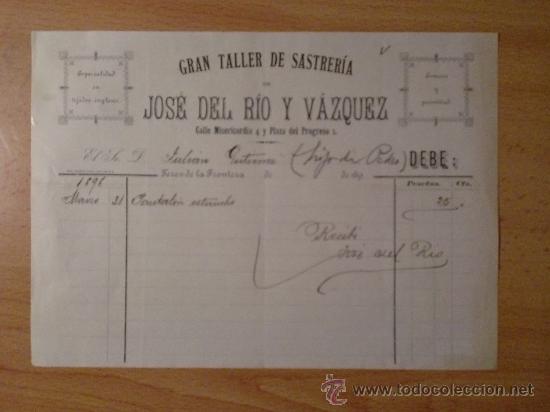 GRAN TALLER DE SASTRERÍA
DE
JOSÉ DEL RÍO Y VÁZQUEZ
Calle Misericordia 4 y Plaza del Progreso 1.
Especialidad
en
tejidos ingleses
Esmero
y
puntualidad
El Sr. D. Julian Gutierrez (hijo de Pedro) DEBE:
Jerez de la Frontera de de 189
Pesetas. Cts.
1896
Marzo 21 Pantalón estambre 25
Recibí
José del Rio
www.todocoleccion.net